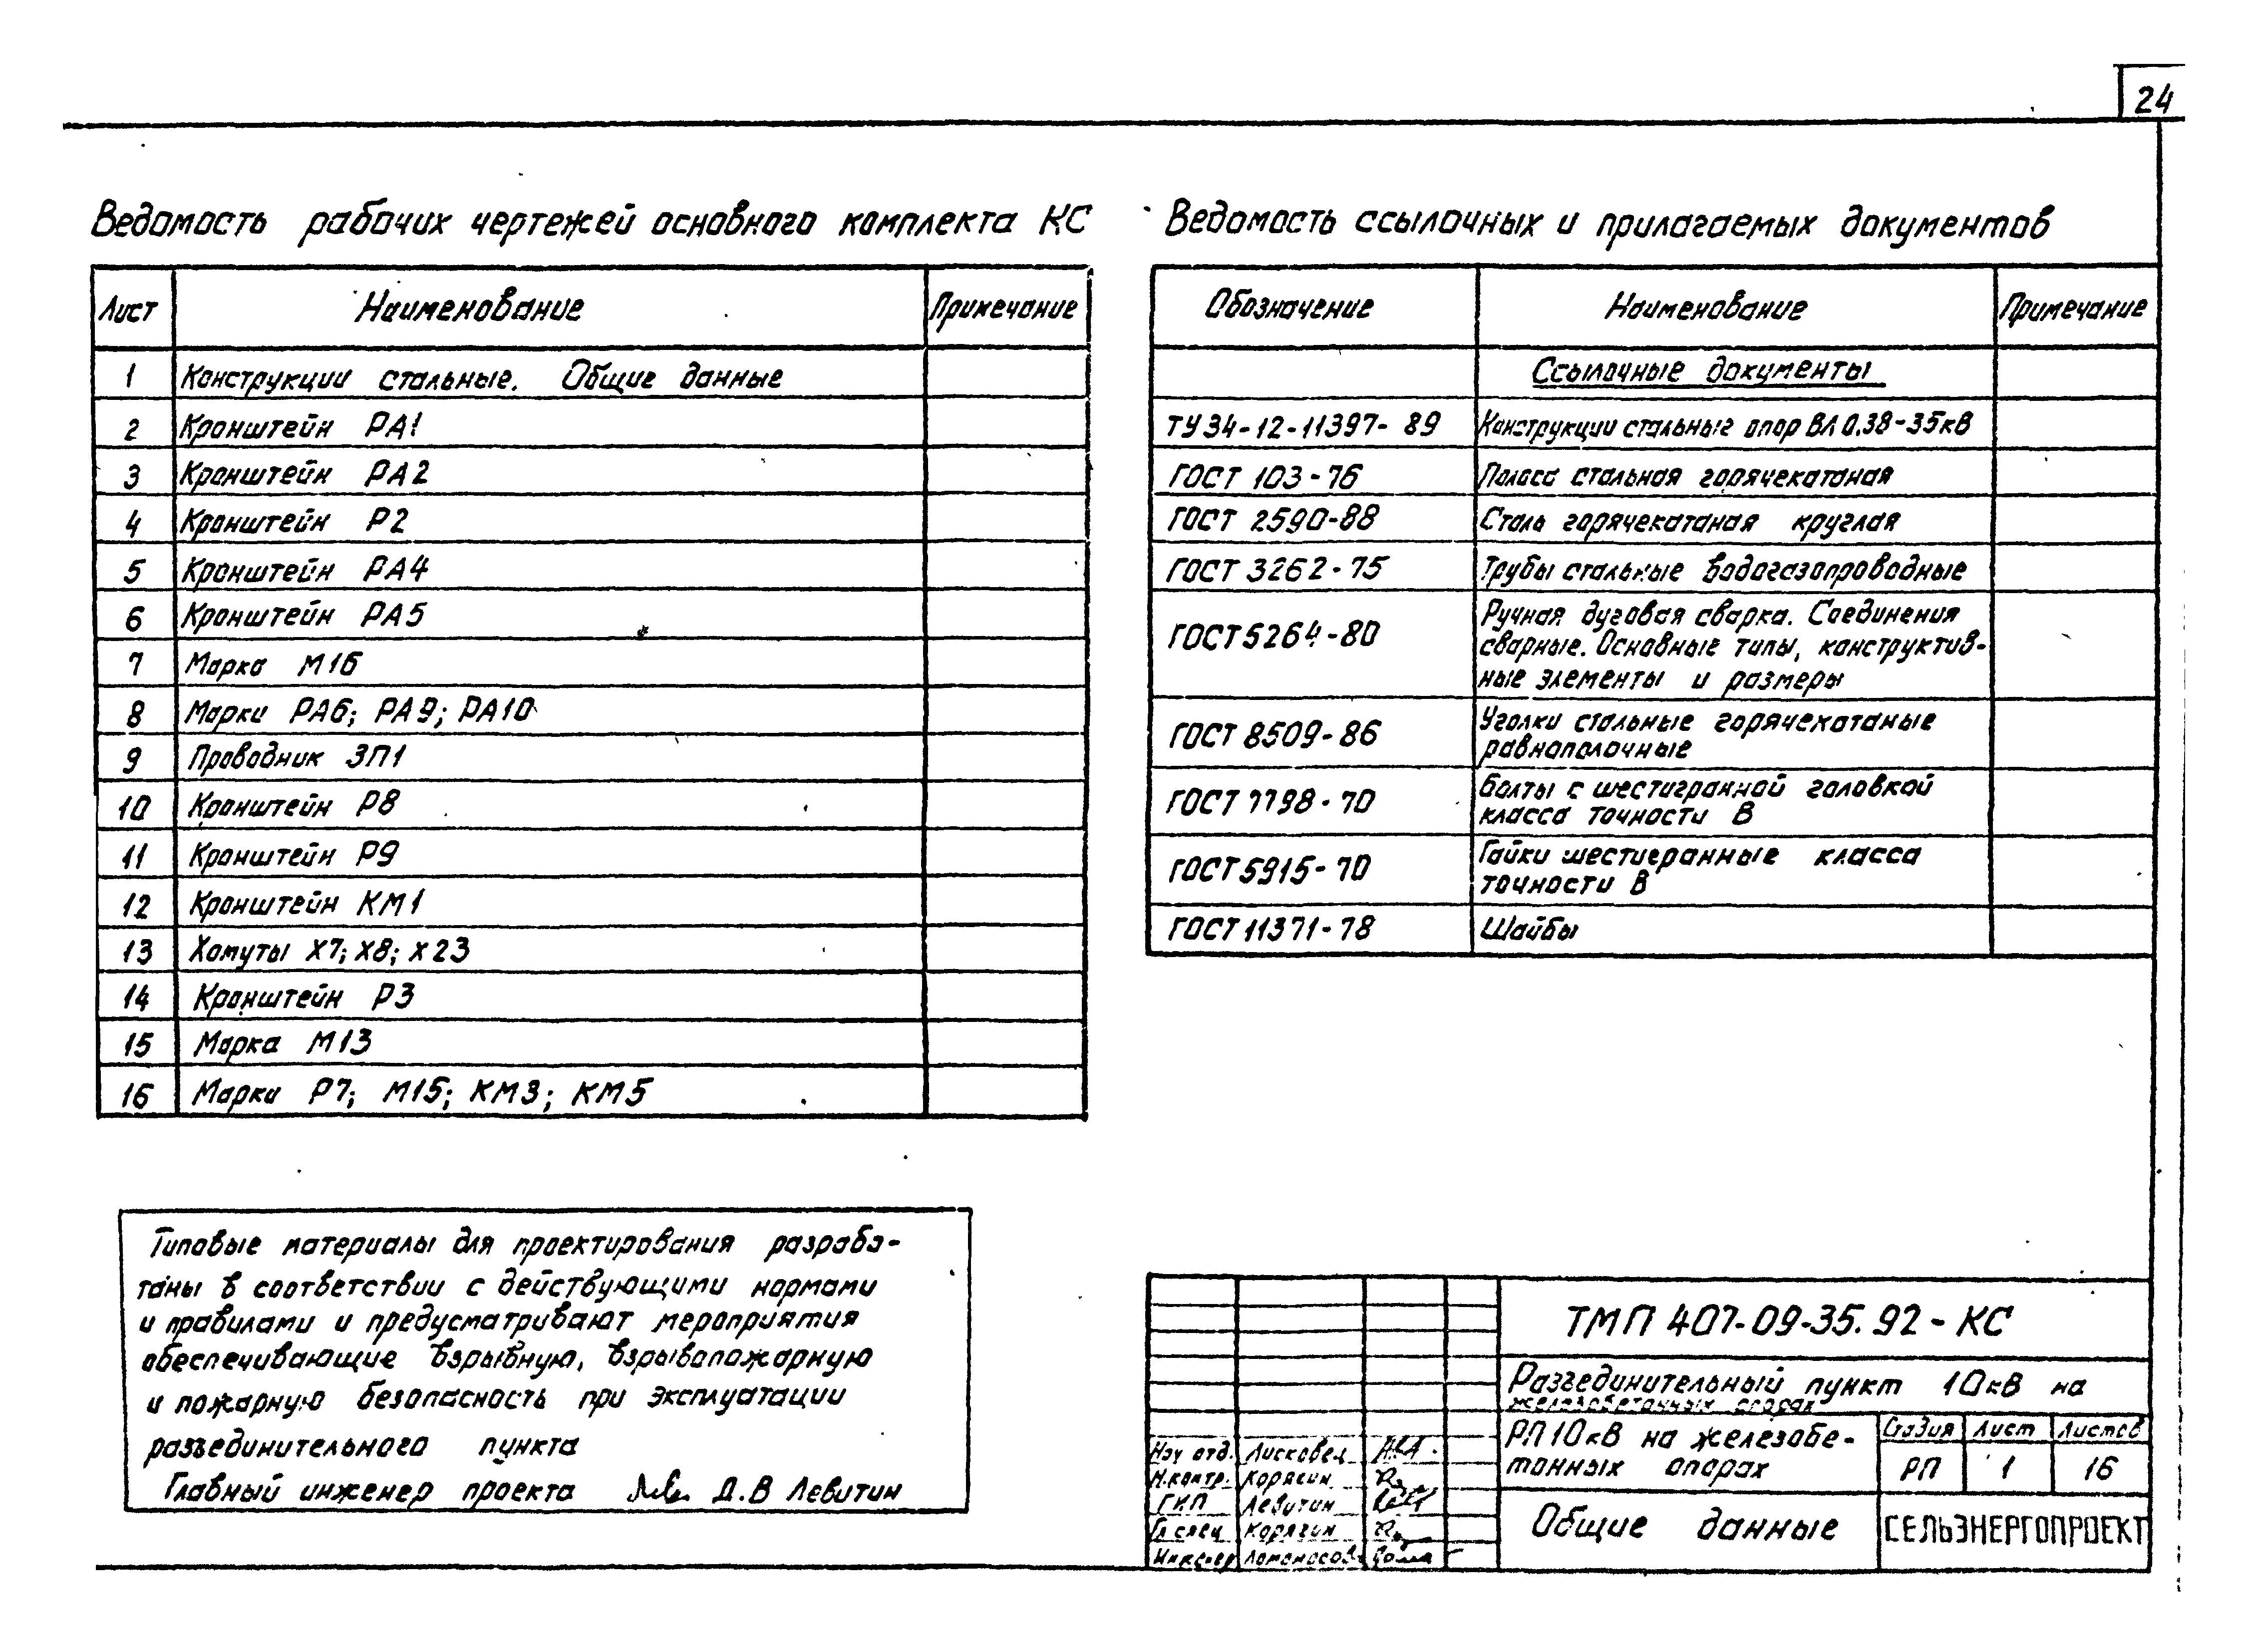 24
Ведомость рабочих чертежей основного комплекта КС
Лист Наименование Примечание
1 Конструкции стальные. Общие данные
2 Кронштейн РА1
3 Кронштейн РА2
4 Кронштейн Р2
5 Кронштейн РА4
6 Кронштейн РА5
7 Марка М16
8 Марки РА6; РА9; РА10
9 Проводник ЗП1
10 Кронштейн Р8
11 Кронштейн Р9
12 Кронштейн КМ1
13 Хомуты Х7; Х8; Х23
14 Кронштейн Р3
15 Марка М13
16 Марки Р7; М15; КМ3; КМ5
Ведомость ссылочных и прилагаемых документов
Обозначение Наименование Примечание
Ссылочные документы
ТУ34-12-11397-89 Конструкции стальные опор ВЛ 0.38-35кВ
ГОСТ 103-76 Полоса стальная горячекатаная
ГОСТ 2590-88 Сталь горячекатаная круглая
ГОСТ 3262-75 Трубы стальные водогазопроводные
ГОСТ 5264-80 Ручная дуговая сварка. Соединения
сварные. Основные типы, конструктив-
ные элементы и размеры
ГОСТ 8509-86 Уголки стальные горячекатаные
равнополочные
ГОСТ 7798-70 Болты с шестигранной головкой
класса точности В
ГОСТ 5915-70 Гайки шестигранные класса
точности В
ГОСТ 11371-78 Шайбы
Типовые материалы для проектирования разрабо-
таны в соответствии с действующими нормами
и правилами и предусматривают мероприятия
обеспечивающие взрывную, взрывопожарную
и пожарную безопасность при эксплуатации
разъединительного пункта
Главный инженер проекта Д.В Левитин
ТМП 407-09-35.92-КС
Разъединительный пункт 10кВ на
железобетонных опорах
РП 10кВ на железобе-
тонных опорах
Стадия Лист Листов
РП 1 16
Общие данные
СЕЛЬЭНЕРГОПРОЕКТ
Нач отд. Лисковец
Н.контр. Корягин
ГИП Левитин
Гл спец Корягин
Инженер